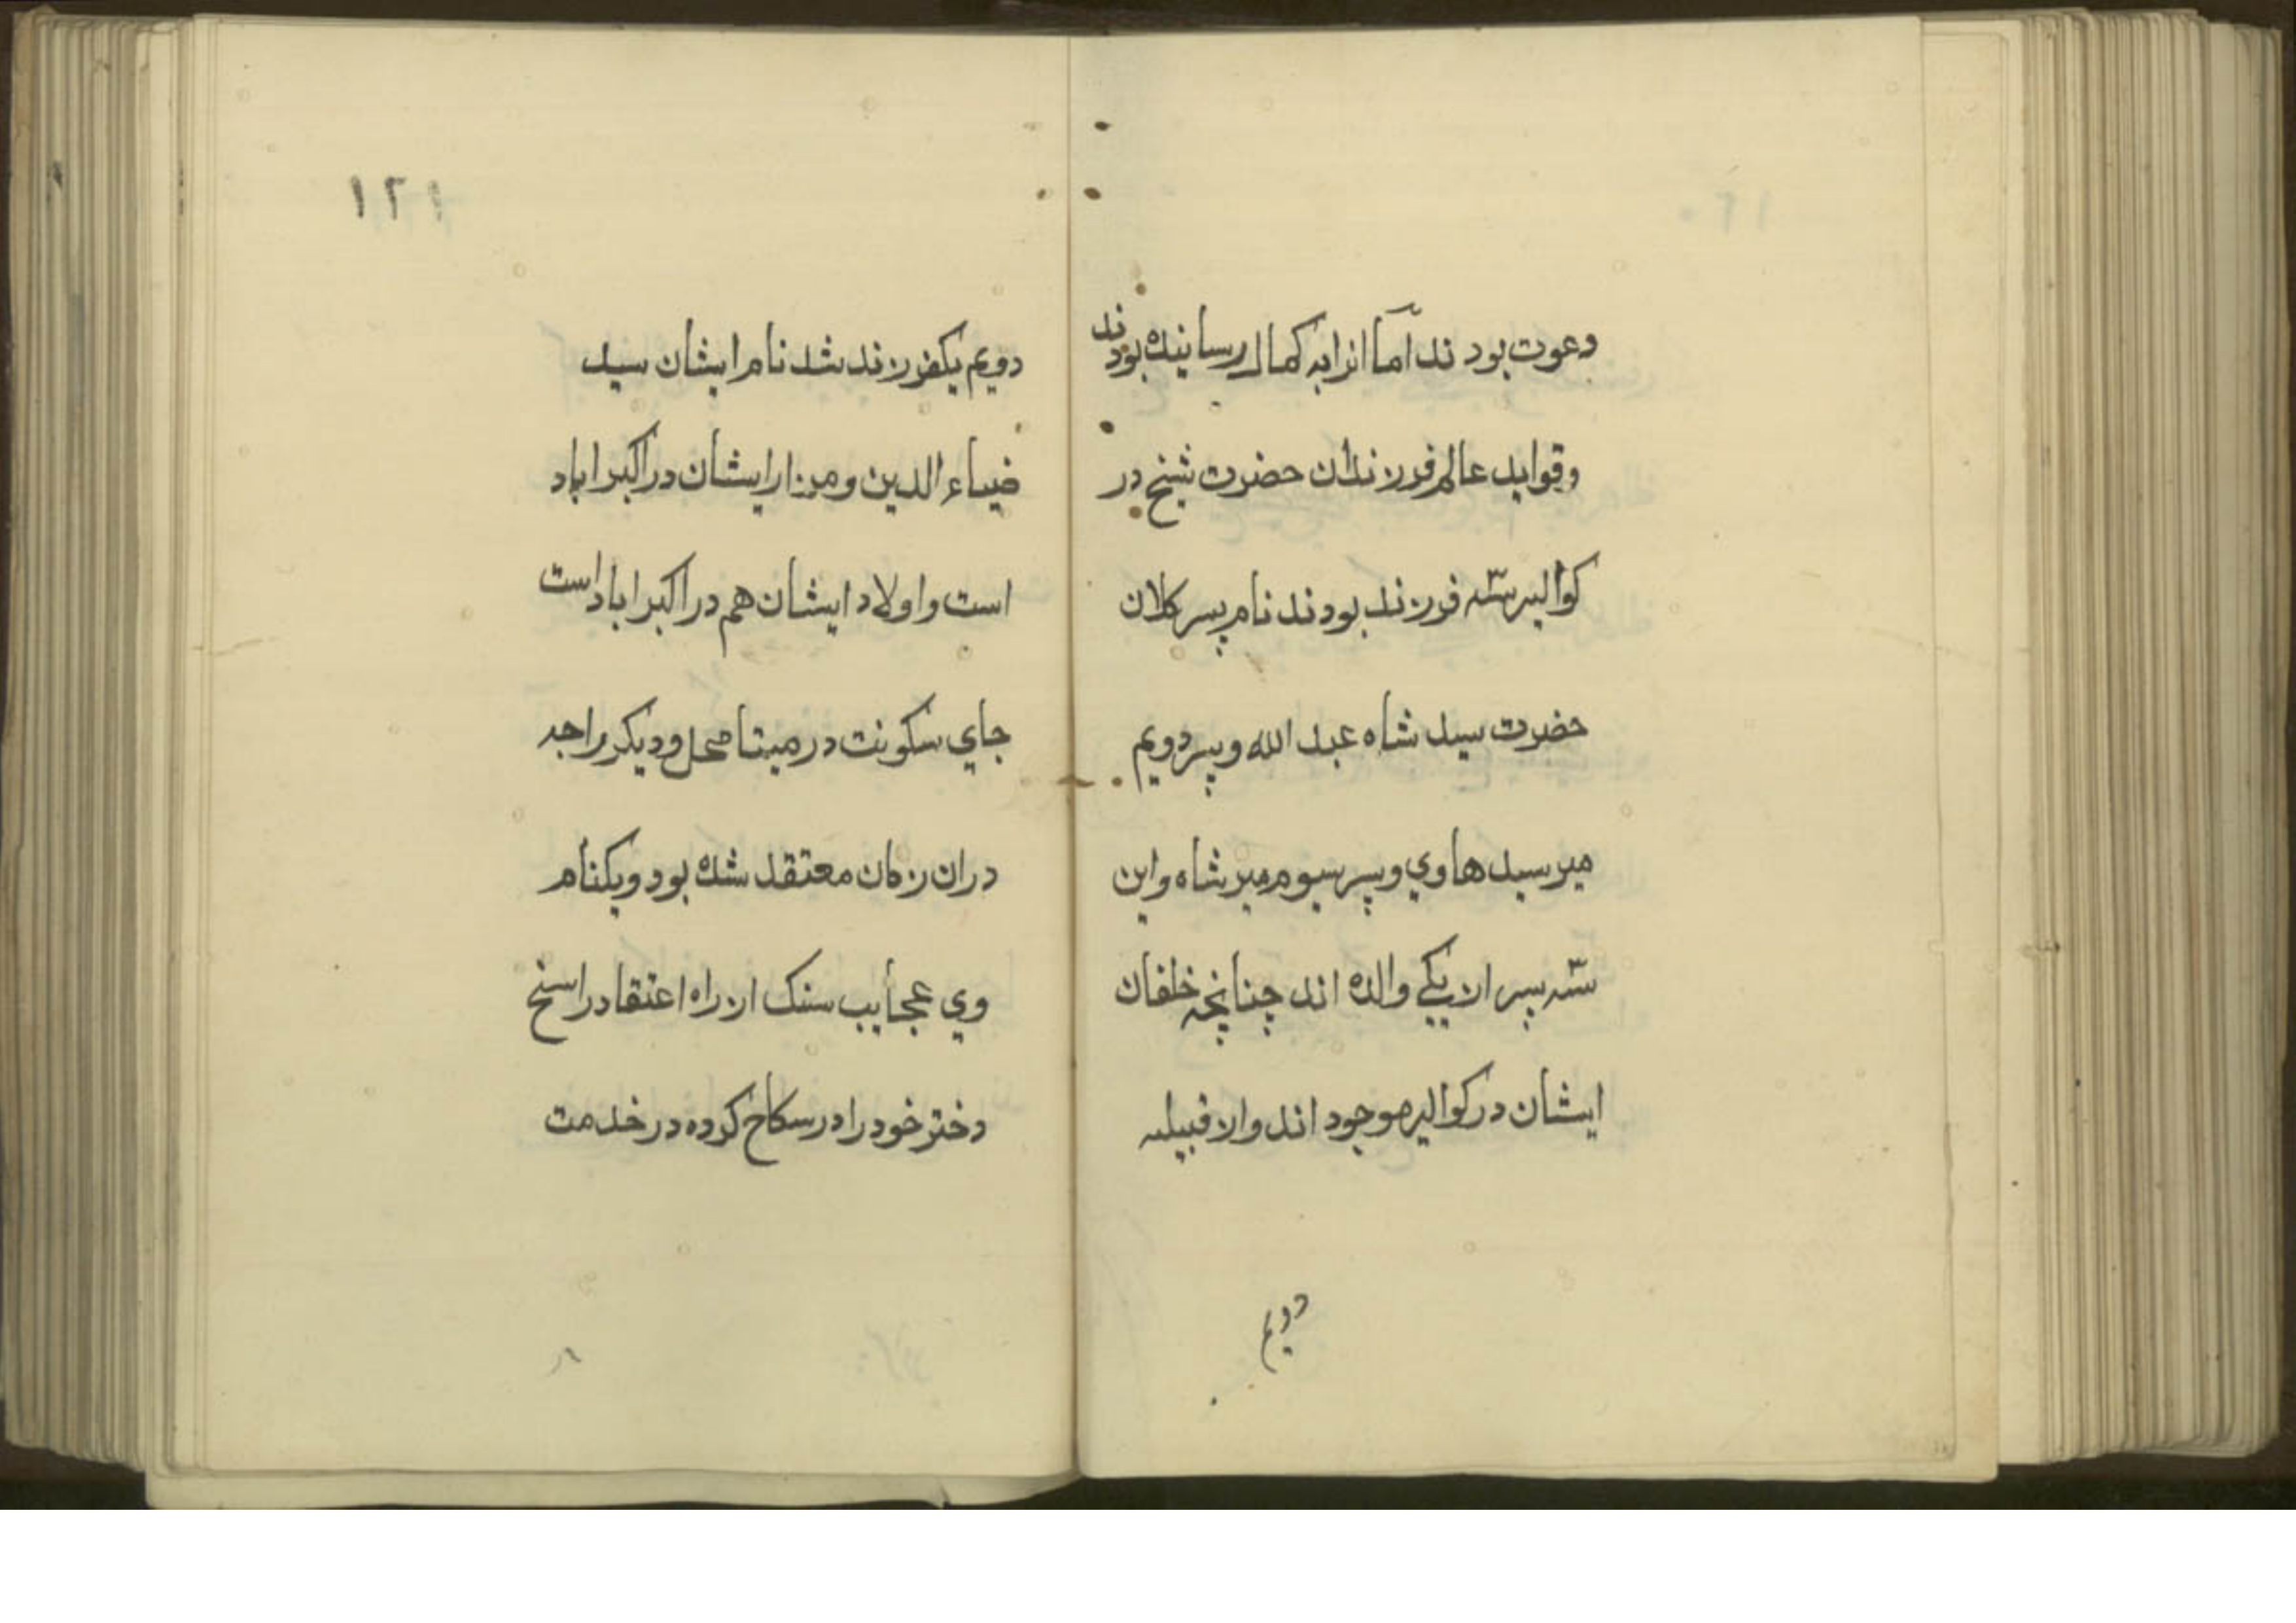 دعوت بودند اما انرا به کمال رسانیده بودند
وقواید عالم فرزندان حضرت شیخ در
کوالیر سته فرزند بودند نام پسر کلان
حضرت سید شاه عبد الله و پسر دویم
میر سید هاوي و پسر سیوم میر شاه و این
سته پسر از یکي والده اند چنانچه خلفان
ایشان در کوالیر موجود اند و از قبیله
دویم
۱۲۱
دویم یکفرزند شد نام ایشان سید
ضیاء الدین و مزار ایشان در اکبراباد
است و اولاد ایشان هم در اکبراباد است
جاي سکونت در میتا محل و دیکر راجه
دران زمان معتقد شده بود و یکنام
وي عجایب سنک از راه اعتقاد راسخ
دختر خود را در سکاح کرده در خدمت